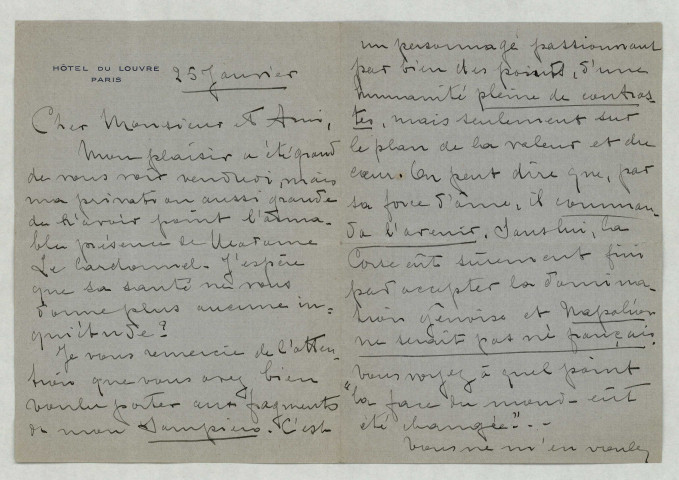 HÔTEL DU LOUVRE
PARIS
25 Janvier
Cher Monsieur et Ami,
Mon plaisir a été grand
de vous voir vendredi, mais
ma privation aussi grande
de n'avoir point l'aima-
ble présence de Madame
Le Cardonnel. J'espère
que sa santé ne vous
donne plus aucune in-
quiétude?
Je vous remercie de l'atten-
tion que vous avez bien
voulu porter aux fragments
de mon Sampiero. C'est
un personnage passionnant
par bien des points, d'une
humanité pleine de contras-
tes, mais seulement sur
le plan de la valeur et du
cœur. On peut dire que, par
sa force d'âme, il comman-
da l'avenir. Sans lui, la
Corse eût sûrement fini
par accepter la domina-
tion génoise et Napoléon
ne serait pas né français.
Vous voyez à quel point
"la face du monde eût
été changée"...
Vous ne m'en voulez